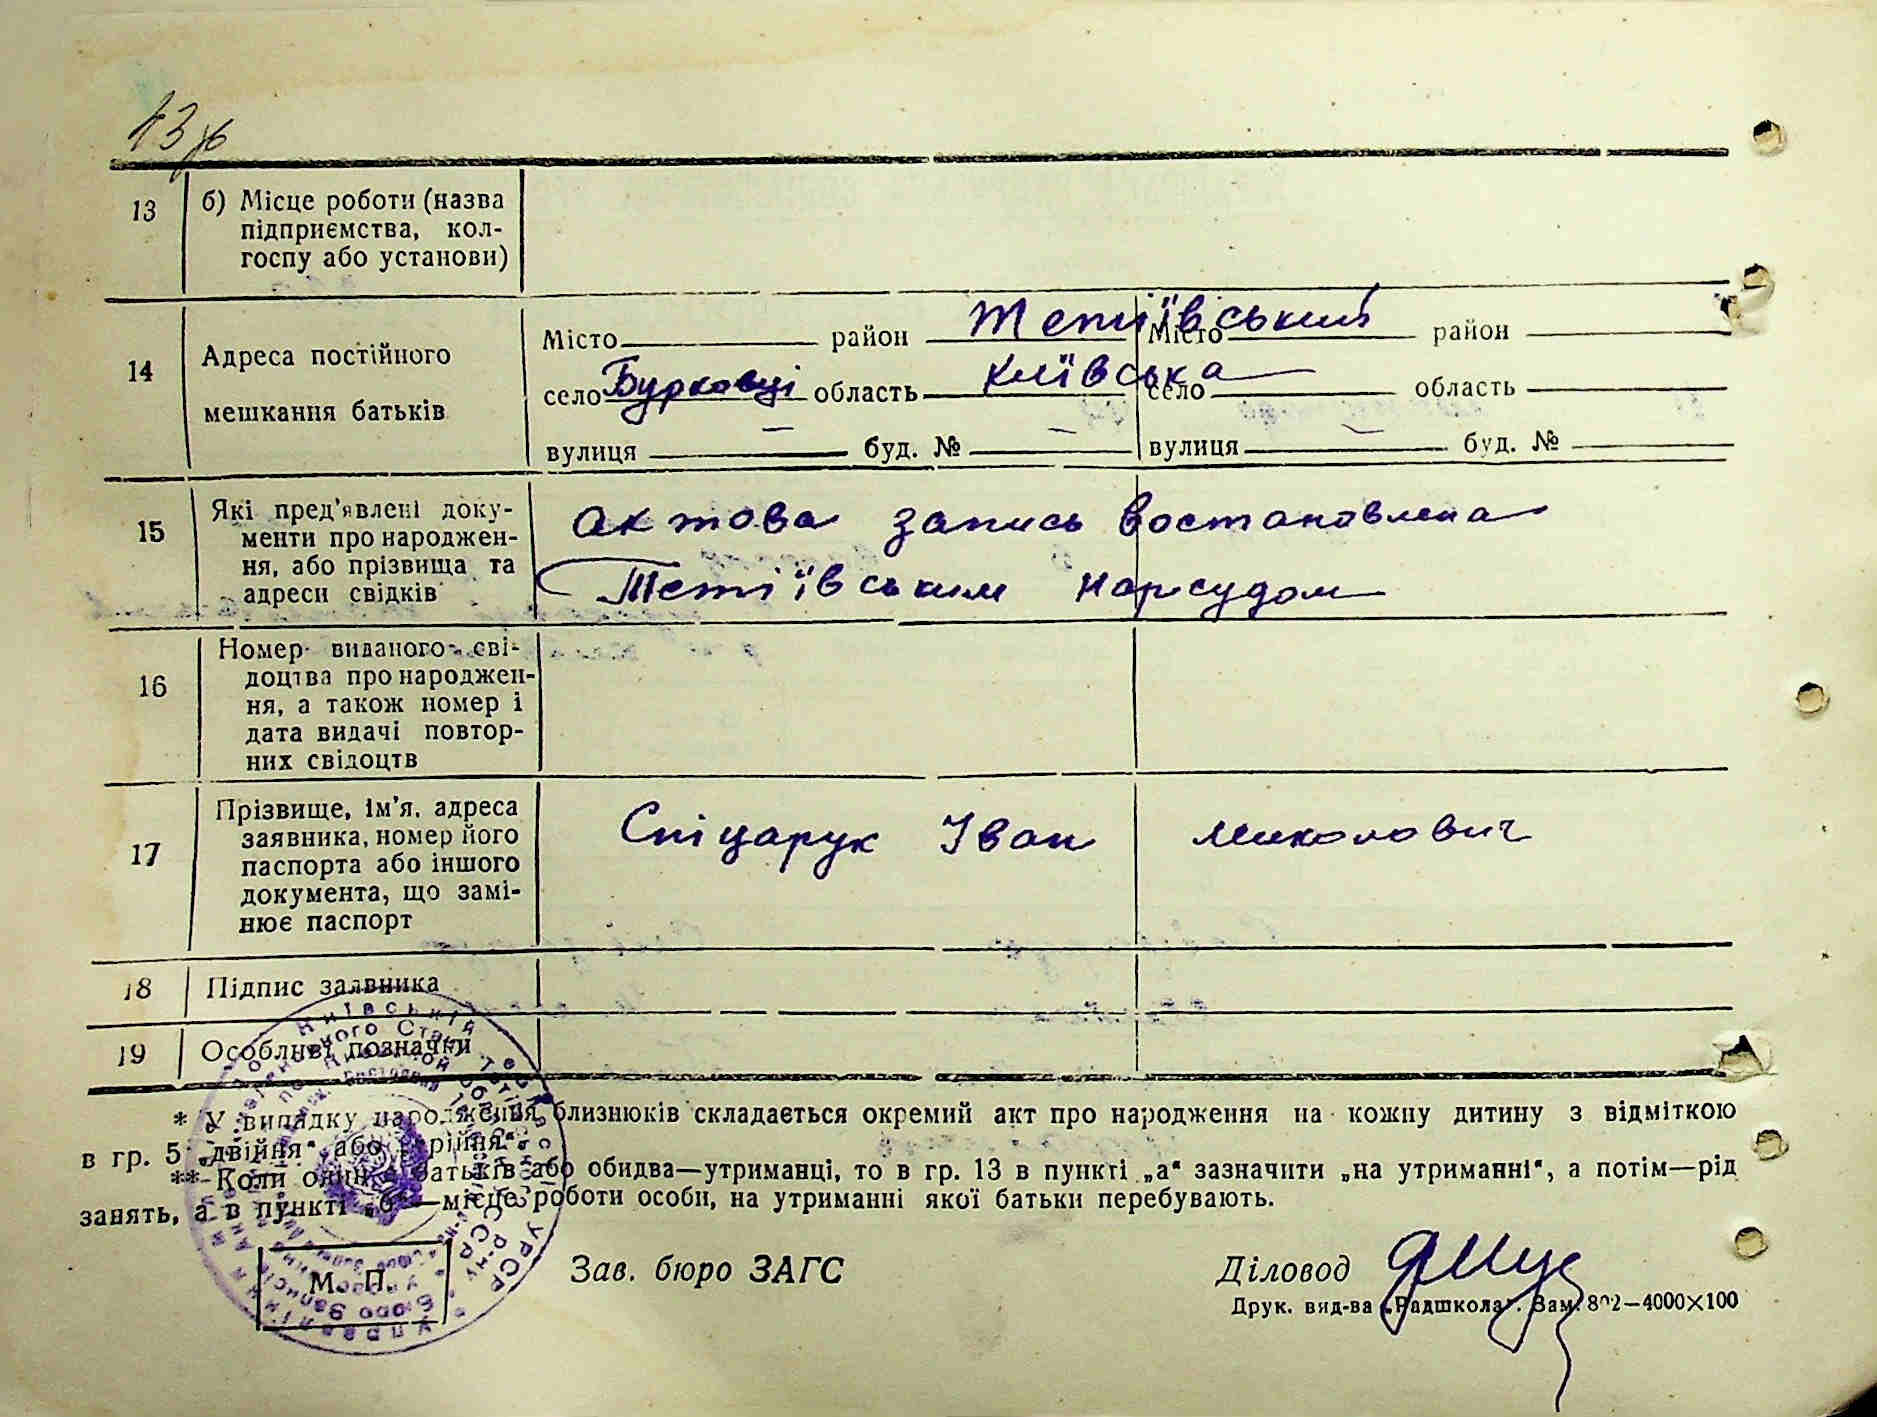 13 б) Місце роботи (назва
підприємства, кол-
госпу або установи)
14 Адреса постійного
мешкання батьків
Місто район Тетіївський
село Бурковці область Київська
вулиця — буд. № —
Місто район
село область
вулиця — буд. №
15 Які пред'явлені доку-
менти про народжен-
ня, або прізвища та
адреси свідків
актова запись востановлена
Тетіївським нарсудом
16 Номер виданого сві-
доцтва про народжен-
ня, а також номер і
дата видачі повтор-
них свідоцтв
17 Прізвище, ім'я, адреса
заявника, номер його
паспорта або іншого
документа, що замі-
нює паспорт
Спіцарук Іван Миколович
18 Підпис заявника
19 Особливі позначки
* У випадку народження близнюків складається окремий акт про народження на кожну дитину з відміткою
в гр. 5 „двійня“ або „трійня“.
** Коли один з батьків або обидва—утриманці, то в гр. 13 в пункті „а“ зазначити „на утриманні“, а потім—рід
занять, а в пункті „б“—місце роботи особи, на утриманні якої батьки перебувають.
М. П.
Зав. бюро ЗАГС
Діловод
Друк. вид-ва „Радшкола“. Зам. 802—4000×100